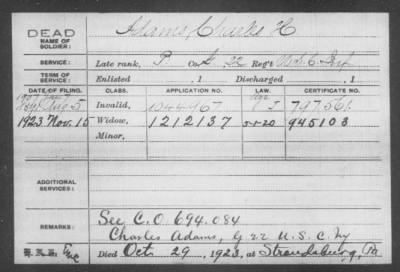 DEAD
NAME OF SOLDIER: Adams, Charles H
SERVICE: Late rank, P. Co. G, 22 Reg't U.S.C. Inf
TERM OF SERVICE: Enlisted , 1 Discharged , 1
DATE OF FILING. CLASS. APPLICATION NO. LAW. CERTIFICATE NO.
Aug 5 Invalid, 1044967 797.561
1923 Nov. 15 Widow, 1212137 5-1-20 945103
Minor,
ADDITIONAL SERVICES:
REMARKS: See C.O 694.084
Charles Adams, G 22 U.S.C. Inf
Died Oct. 29, 1923, at Stroudsburg, Pa